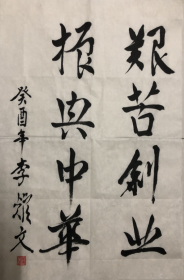 艰苦创业
振兴中华
癸酉年 李耀文